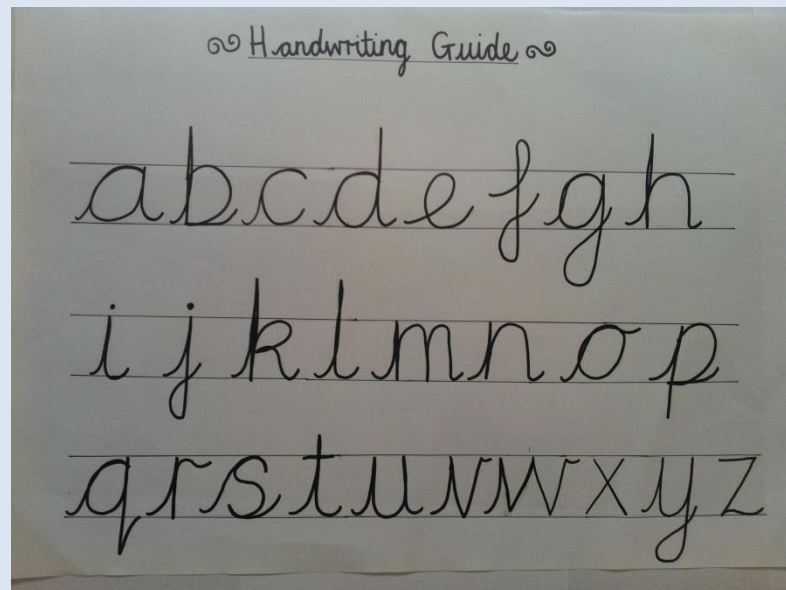 Handwriting Guide
a b c d e f g h
i j k l m n o p
q r s t u v w x y z